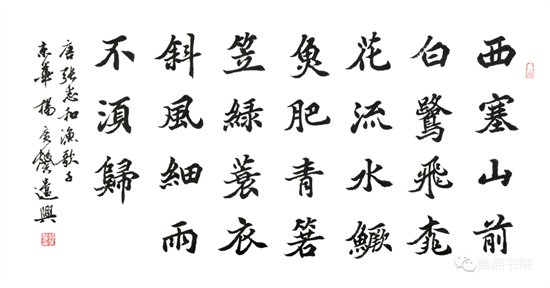 西塞山前
白鷺飛桃
花流水鱖
魚肥青箬
笠綠蓑衣
斜風細雨
不湏歸
唐張志和漁歌子
京華楊廣馨遣興
幽燕书院